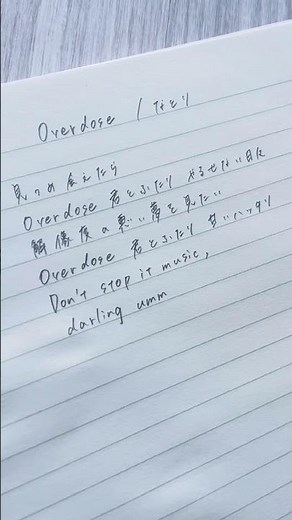 Overdose / なとり
見つめ合えたら
Overdose 君とふたり やるせない日々
解像度の悪い夢を見たい
Overdose 君とふたり 甘いハッタリ
Don't stop it music,
darling umm